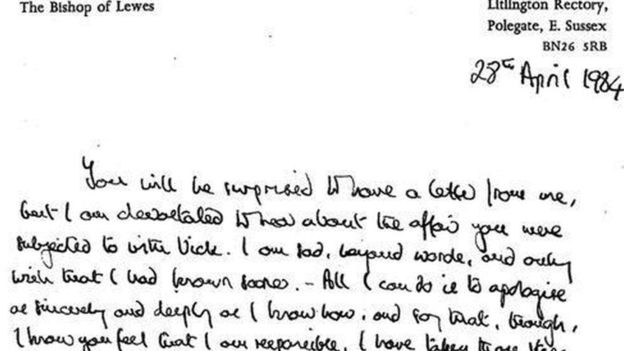 The Bishop of Lewes
Litlington Rectory,
Polegate, E. Sussex
BN26 5RB
28th April 1984
You will be surprised to have a letter from me,
but I am devastated to hear about the affair you were
subjected to with Vick. I am sad, beyond words, and only
wish that I had known sooner. - All I can do is to apologise
as sincerely and deeply as I know how, and say that, though,
I know you feel that I am responsible, I have taken